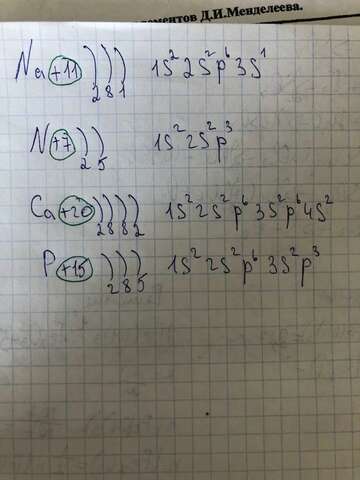 ментов Д.И.Менделеева.
Na +11 ) ) ) 1s² 2s² p⁶ 3s¹
2 8 1
N +7 ) ) 1s² 2s² p³
2 5
Ca +20 ) ) ) ) 1s² 2s² p⁶ 3s² p⁶ 4s²
2 8 8 2
P +15 ) ) ) 1s² 2s² p⁶ 3s² p³
2 8 5